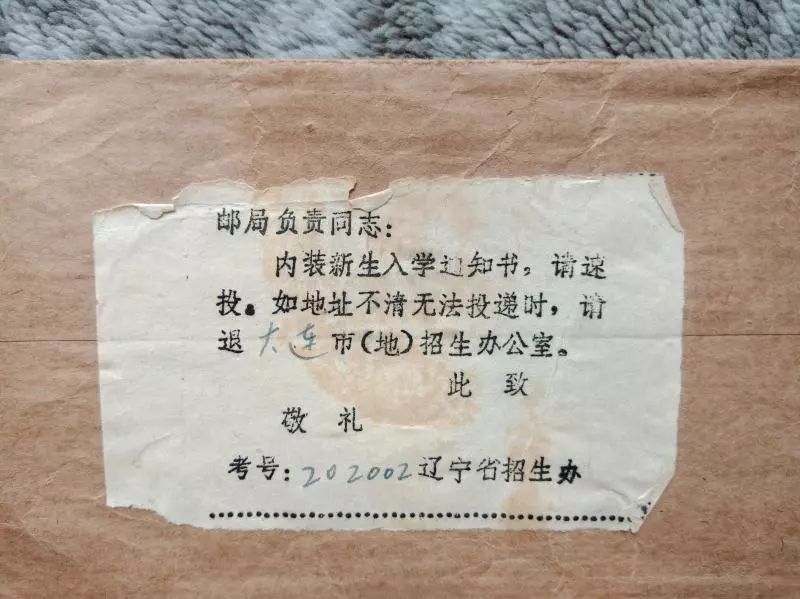 邮局负责同志：
内装新生入学通知书，请速
投。如地址不清无法投递时，请
退大连市(地)招生办公室。
此 致
敬 礼
考号：202002辽宁省招生办